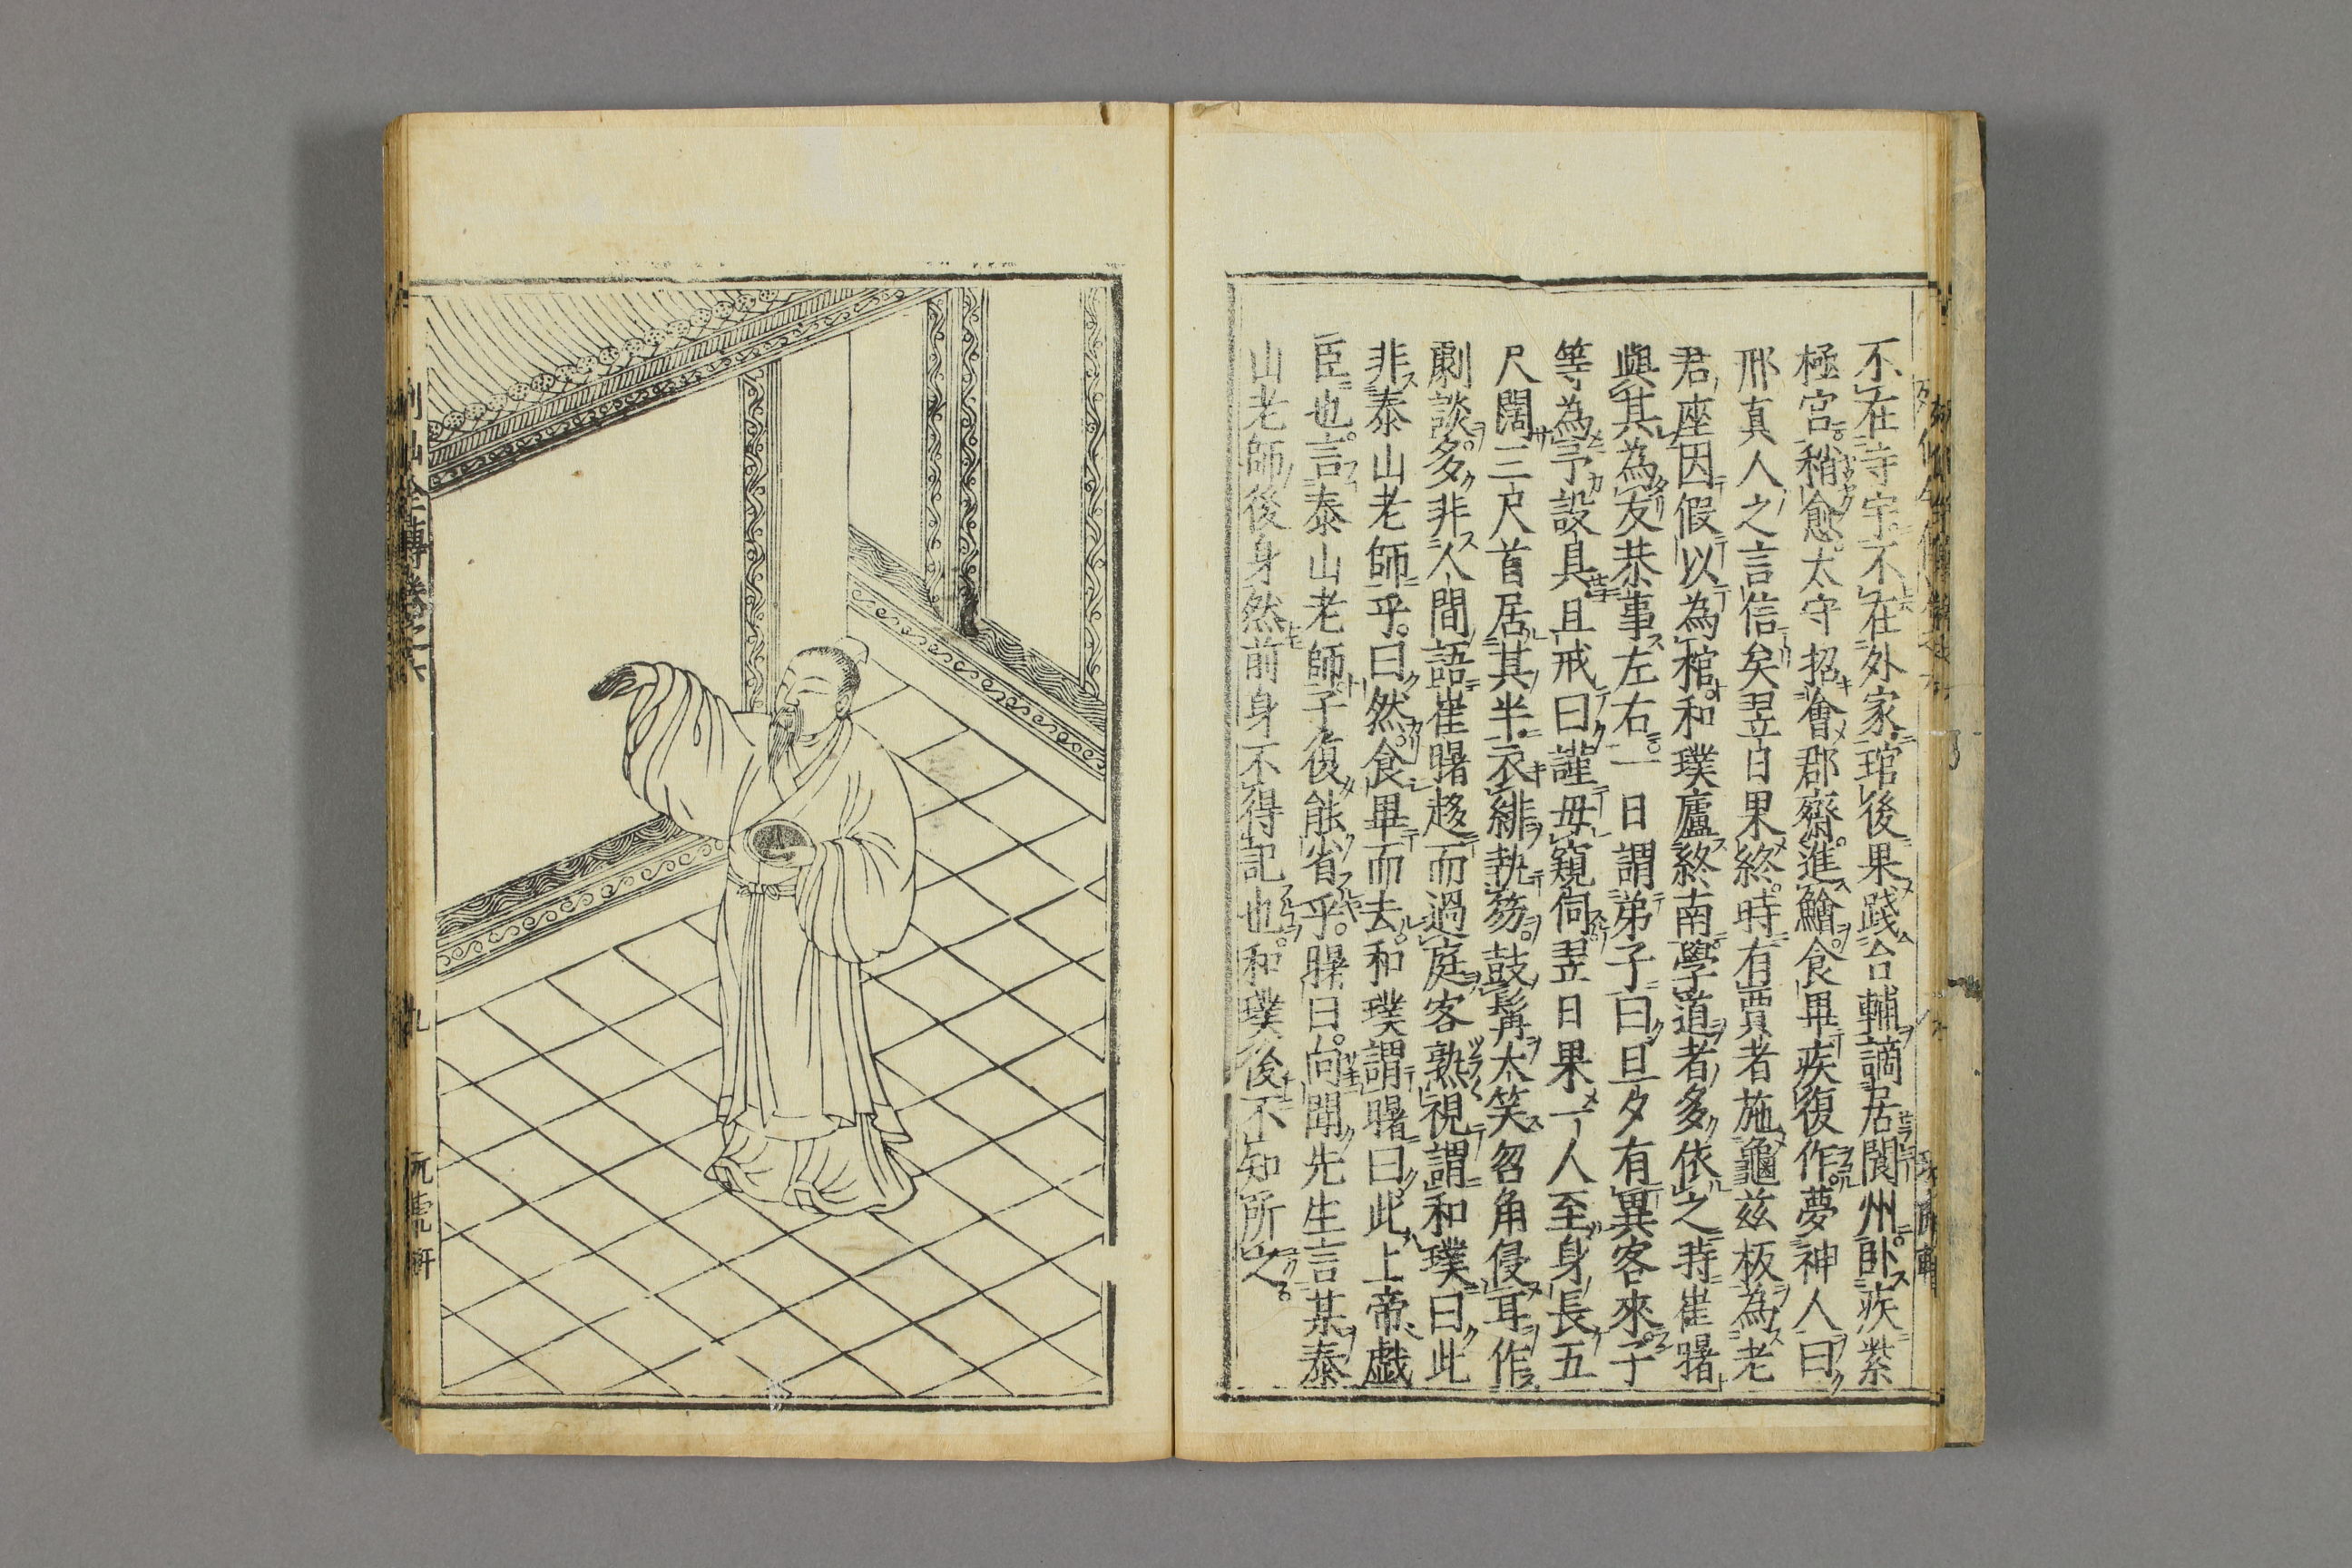 不在寺宇不在外家琯後果踐台輔謫居閬州臥疾紫
極宮稍愈太守招會郡齋進鱠食畢疾復作夢神人曰
邢真人之言信矣翌日果終時有賈者施龜茲板為老
君座因假以為棺和璞廬終南學道者多依之時崔曙
與其為友恭事左右一日謂弟子曰旦夕有異客來子
等為予設具且戒曰謹毋窺伺翌日果一人至身長五
尺闊三尺首居其半衣緋執笏鼓髯大笑吻角侵耳作
劇談多非人間語崔曙趍而過庭客熟視謂和璞曰此
非泰山老師乎曰然食畢而去和璞謂曙曰此上帝戯
臣也言泰山老師子復能省乎曙曰向聞先生言某泰
山老師後身然前身不得記也和璞後不知所之
列仙全傳卷之六
九
玩虎軒